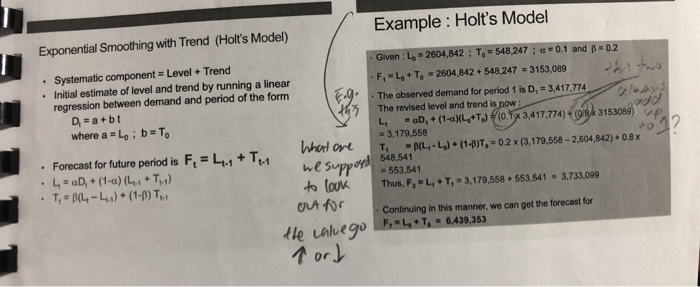 Exponential Smoothing with Trend (Holt's Model)
• Systematic component = Level + Trend
• Initial estimate of level and trend by running a linear
regression between demand and period of the form
Dt = a + b t
where a = L₀ ; b = T₀
• Forecast for future period is Ft = Lt-1 + Tt-1
• Lt = αDt + (1-α) (Lt-1 + Tt-1)
• Tt = β(Lt – Lt-1) + (1-β) Tt-1
E.g.
this
What are
we supposed
to look
out for
the value go
↑ or ↓
Example : Holt's Model
• Given : L₀ = 2604,842 ; T₀ = 548,247 ; α = 0.1 and β = 0.2
• F₁ = L₀ + T₀ = 2604,842 + 548,247 = 3153,089
this two
• The observed demand for period 1 is D₁ = 3,417,774
always
The revised level and trend is now :
add
L₁ = αD₁ + (1-α)(L₀+T₀) = (0.1 x 3,417,774) + (0.9 x 3153089)
up
= 3,179,558
to 1?
T₁ = β(L₁ - L₀) + (1-β)T₀ = 0.2 x (3,179,558 – 2,604,842) + 0.8 x
548,541
= 553,541
Thus, F₂ = L₁ + T₁ = 3,179,558 + 553,541 = 3,733,099
• Continuing in this manner, we can get the forecast for
F₇ = L₆ + T₆ = 6,439,353